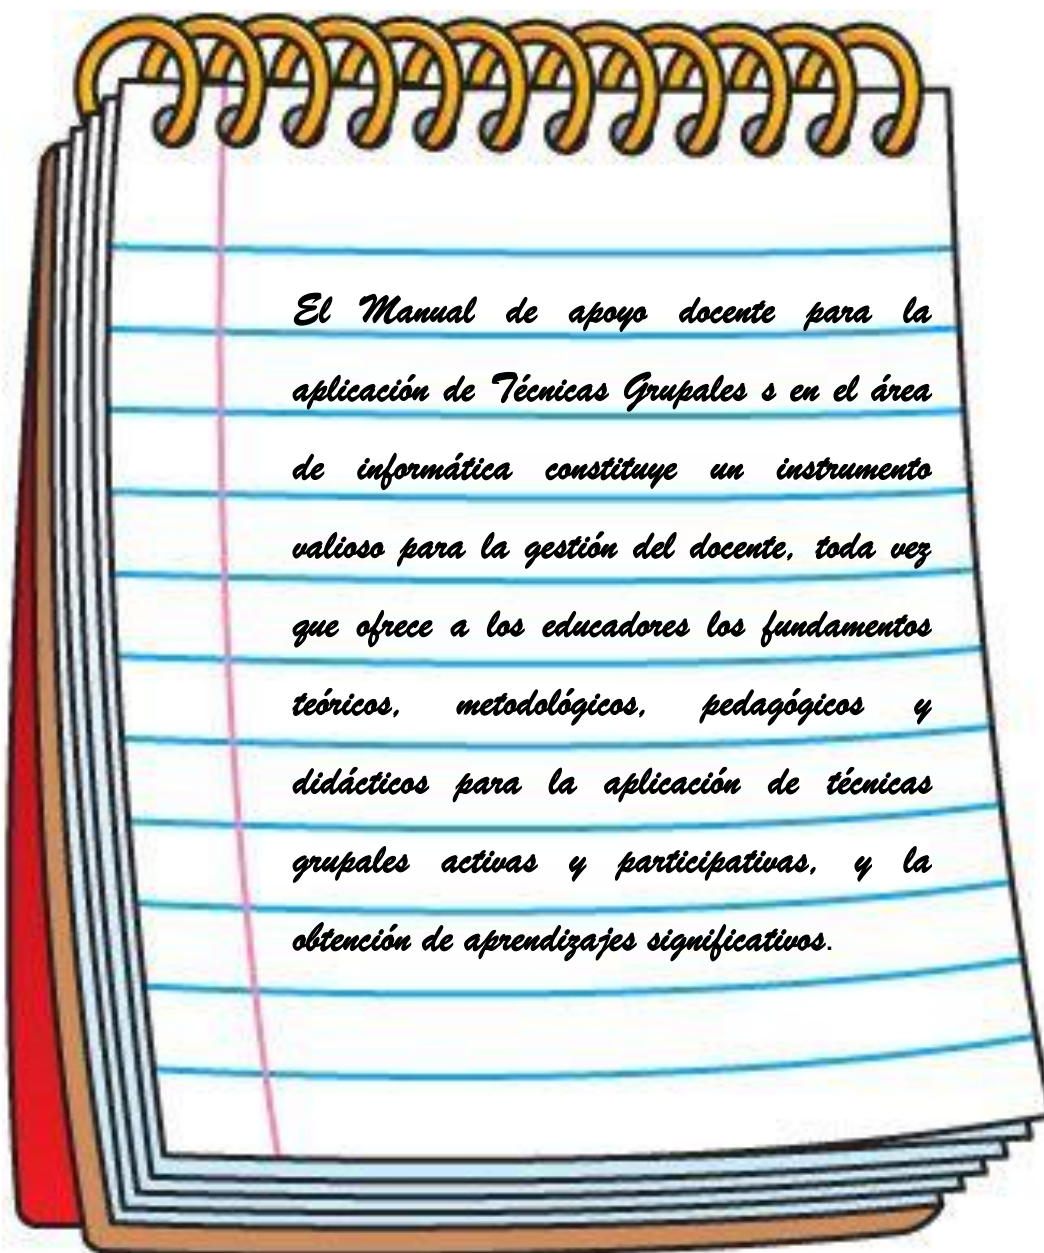 El Manual de apoyo docente para la
aplicación de Técnicas Grupales s en el área
de informática constituye un instrumento
valioso para la gestión del docente, toda vez
que ofrece a los educadores los fundamentos
teóricos, metodológicos, pedagógicos y
didácticos para la aplicación de técnicas
grupales activas y participativas, y la
obtención de aprendizajes significativos.